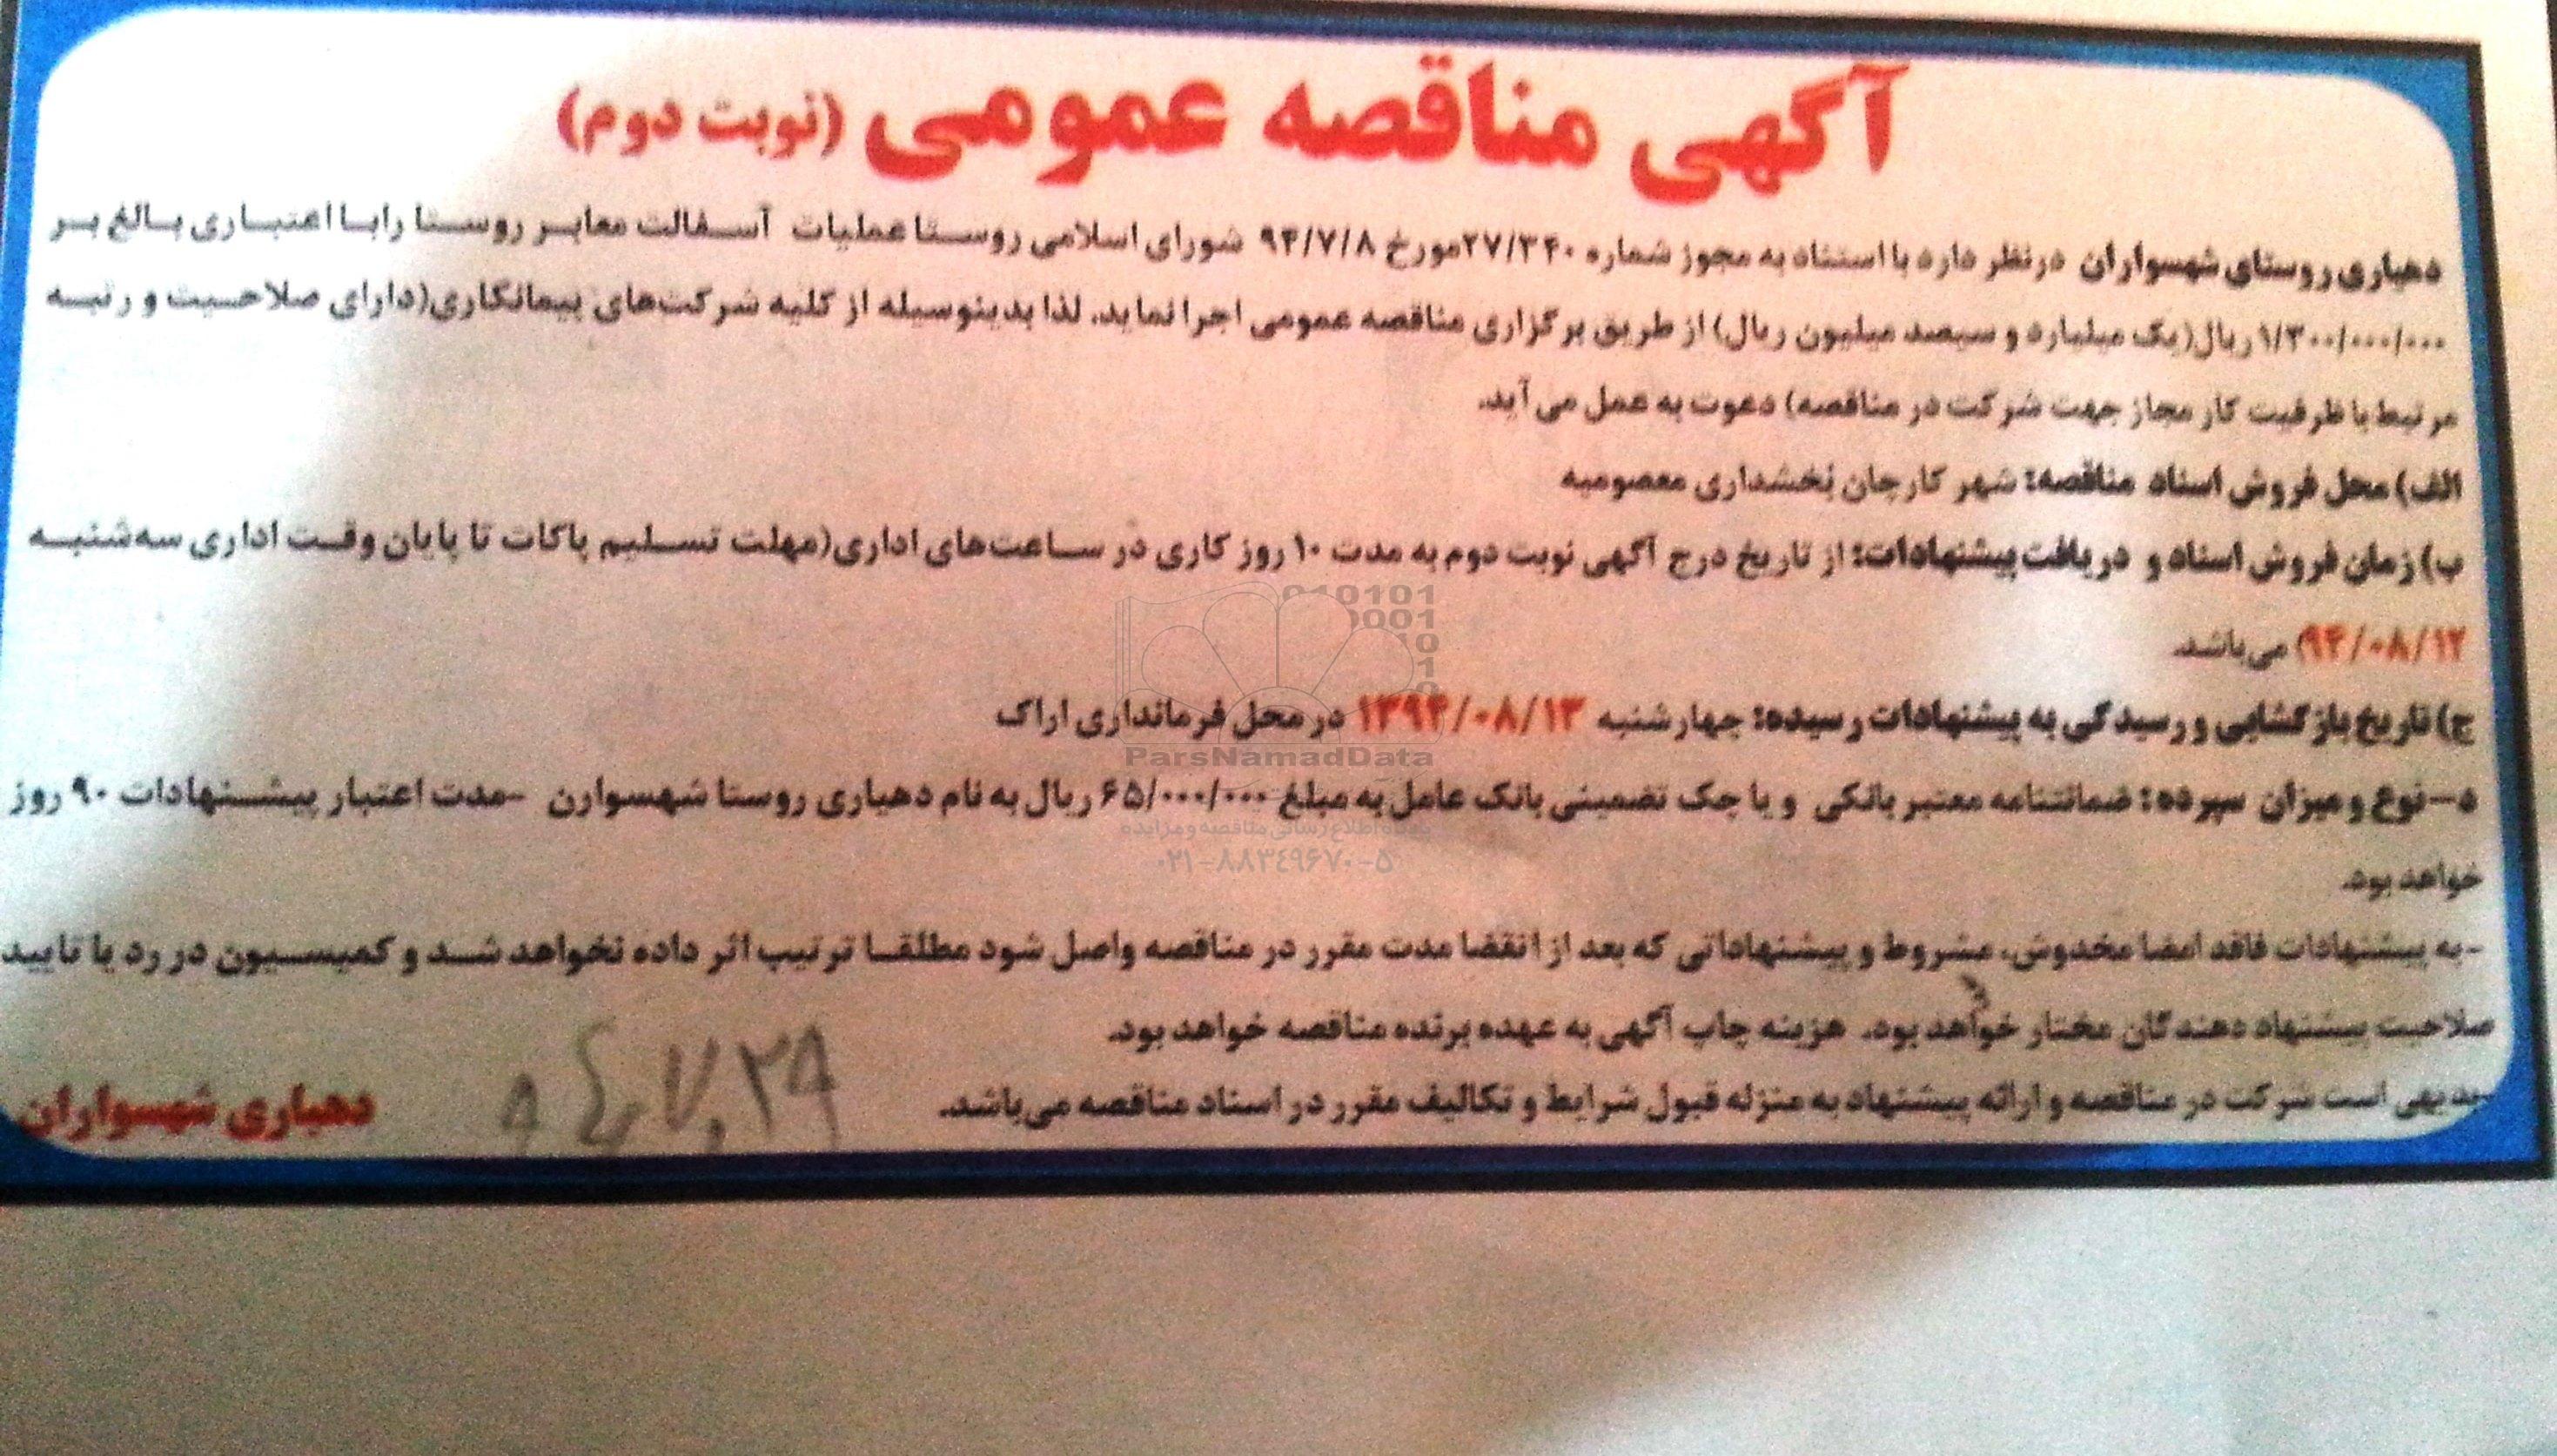 آگهی مناقصه عمومی (نوبت دوم)
دهیاری روستای شهسواران درنظر دارد با استناد به مجوز شماره ۲۷/۳۴۰مورخ ۹۴/۷/۸ شورای اسلامی روستا عملیات آسفالت معابر روستا رابا اعتباری بالغ بر
۱/۳۰۰/۰۰۰/۰۰۰ ریال(یک میلیارد و سیصد میلیون ریال) از طریق برگزاری مناقصه عمومی اجرا نماید. لذا بدینوسیله از کلیه شرکت‌های پیمانکاری(دارای صلاحیت و رتبه
مرتبط با ظرفیت کار مجاز جهت شرکت در مناقصه) دعوت به عمل می آید.
الف) محل فروش اسناد مناقصه: شهر کارچان بخشداری معصومیه
ب) زمان فروش اسناد و دریافت پیشنهادات: از تاریخ درج آگهی نوبت دوم به مدت ۱۰ روز کاری در ساعت‌های اداری(مهلت تسلیم پاکات تا پایان وقت اداری سه‌شنبه
۹۴/۰۸/۱۲) می‌باشد.
ج) تاریخ بازگشایی و رسیدگی به پیشنهادات رسیده: چهارشنبه ۱۳۹۴/۰۸/۱۳ در محل فرمانداری اراک
د-نوع و میزان سپرده: ضمانتنامه معتبر بانکی و یا چک تضمینی بانک عامل به مبلغ ۶۵/۰۰۰/۰۰۰ ریال به نام دهیاری روستا شهسوارن -مدت اعتبار پیشنهادات ۹۰ روز
خواهد بود.
-به پیشنهادات فاقد امضا مخدوش، مشروط و پیشنهاداتی که بعد از انقضا مدت مقرر در مناقصه واصل شود مطلقا ترتیب اثر داده نخواهد شد و کمیسیون در رد یا تایید
صلاحیت پیشنهاد دهندگان مختار خواهد بود. هزینه چاپ آگهی به عهده برنده مناقصه خواهد بود.
-بدیهی است شرکت در مناقصه و ارائه پیشنهاد به منزله قبول شرایط و تکالیف مقرر در اسناد مناقصه می‌باشد.
دهیاری شهسواران
010101
0001
10
1
0
ParsNamadData
پایگاه اطلاع رسانی مناقصه و مزایده
۰۲۱-۸۸۳۴۹۶۷۰-۵